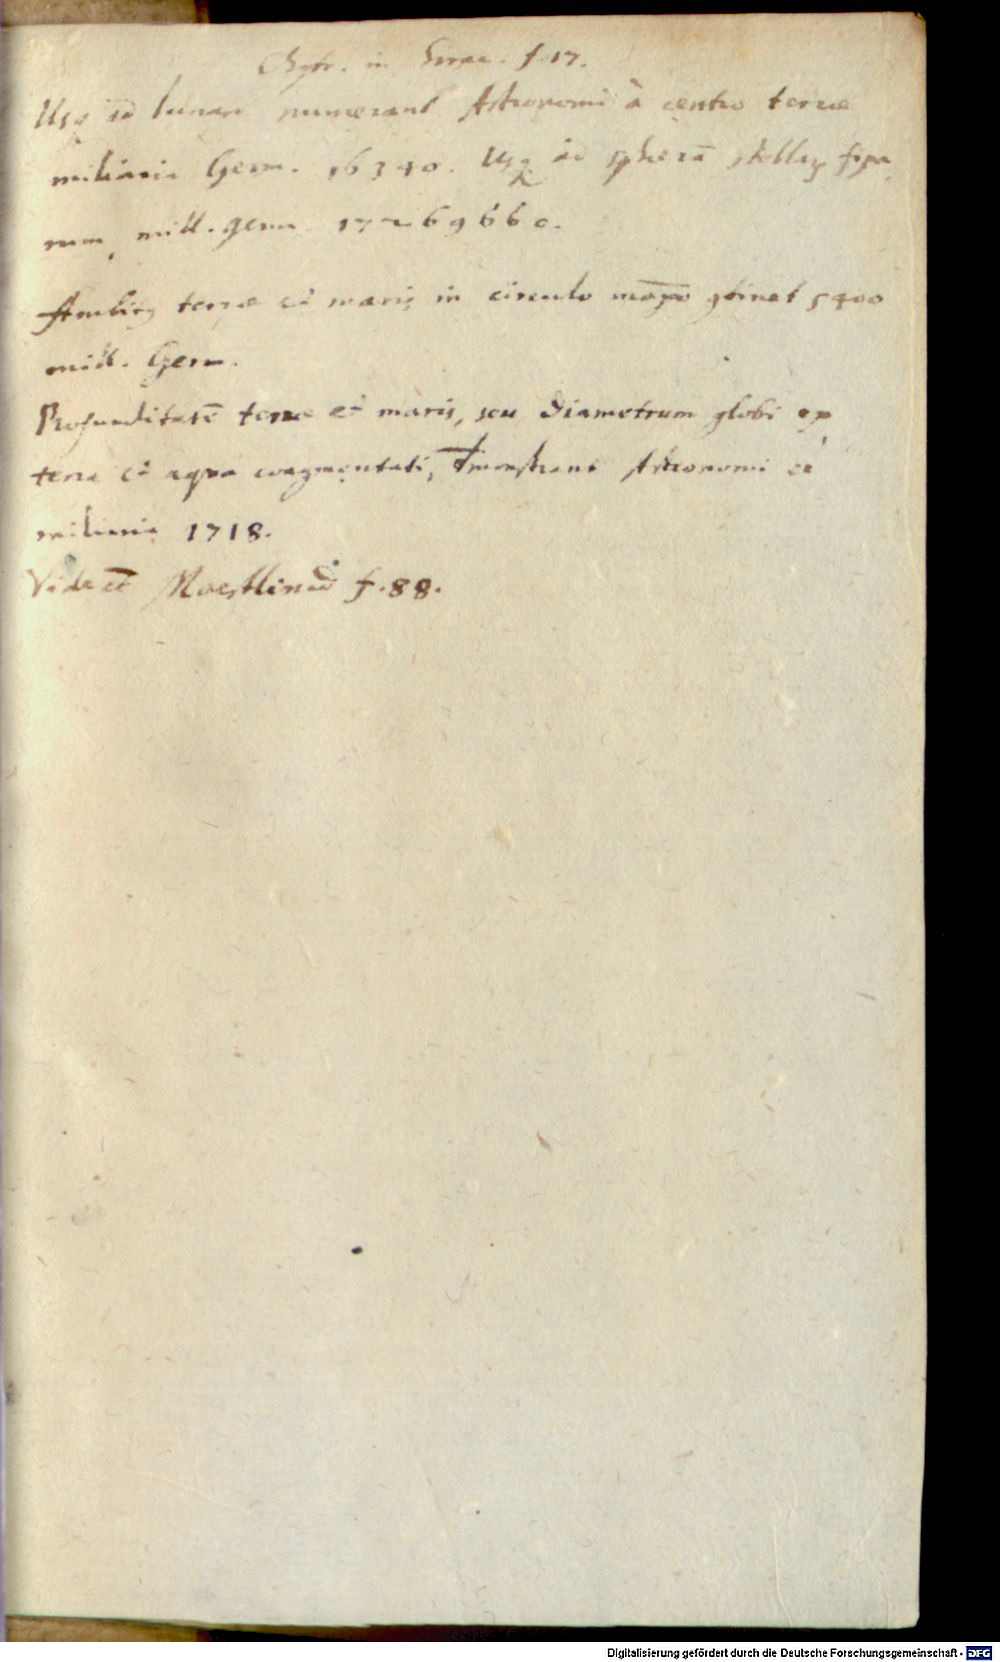 Chytr. in Syrac. f. 17.
Usq; ad lunam numerant Astronomi à centro terrae
miliaria Germ. 16340. Usq; ad spherā stellaꝝ fixa
rum, mill. germ. 17269660.
Ambitꝰ terrae et maris in circulo magno ꝯtinet 5400
mill. Germ.
Profunditatē terrae et maris, seu Diametrum globi ex
terra et aqua coagmentati, demonstrant Astronomi ee
miliaria 1718.
Vide et Maestlinū f. 88.
Digitalisierung gefördert durch die Deutsche Forschungsgemeinschaft - DFG